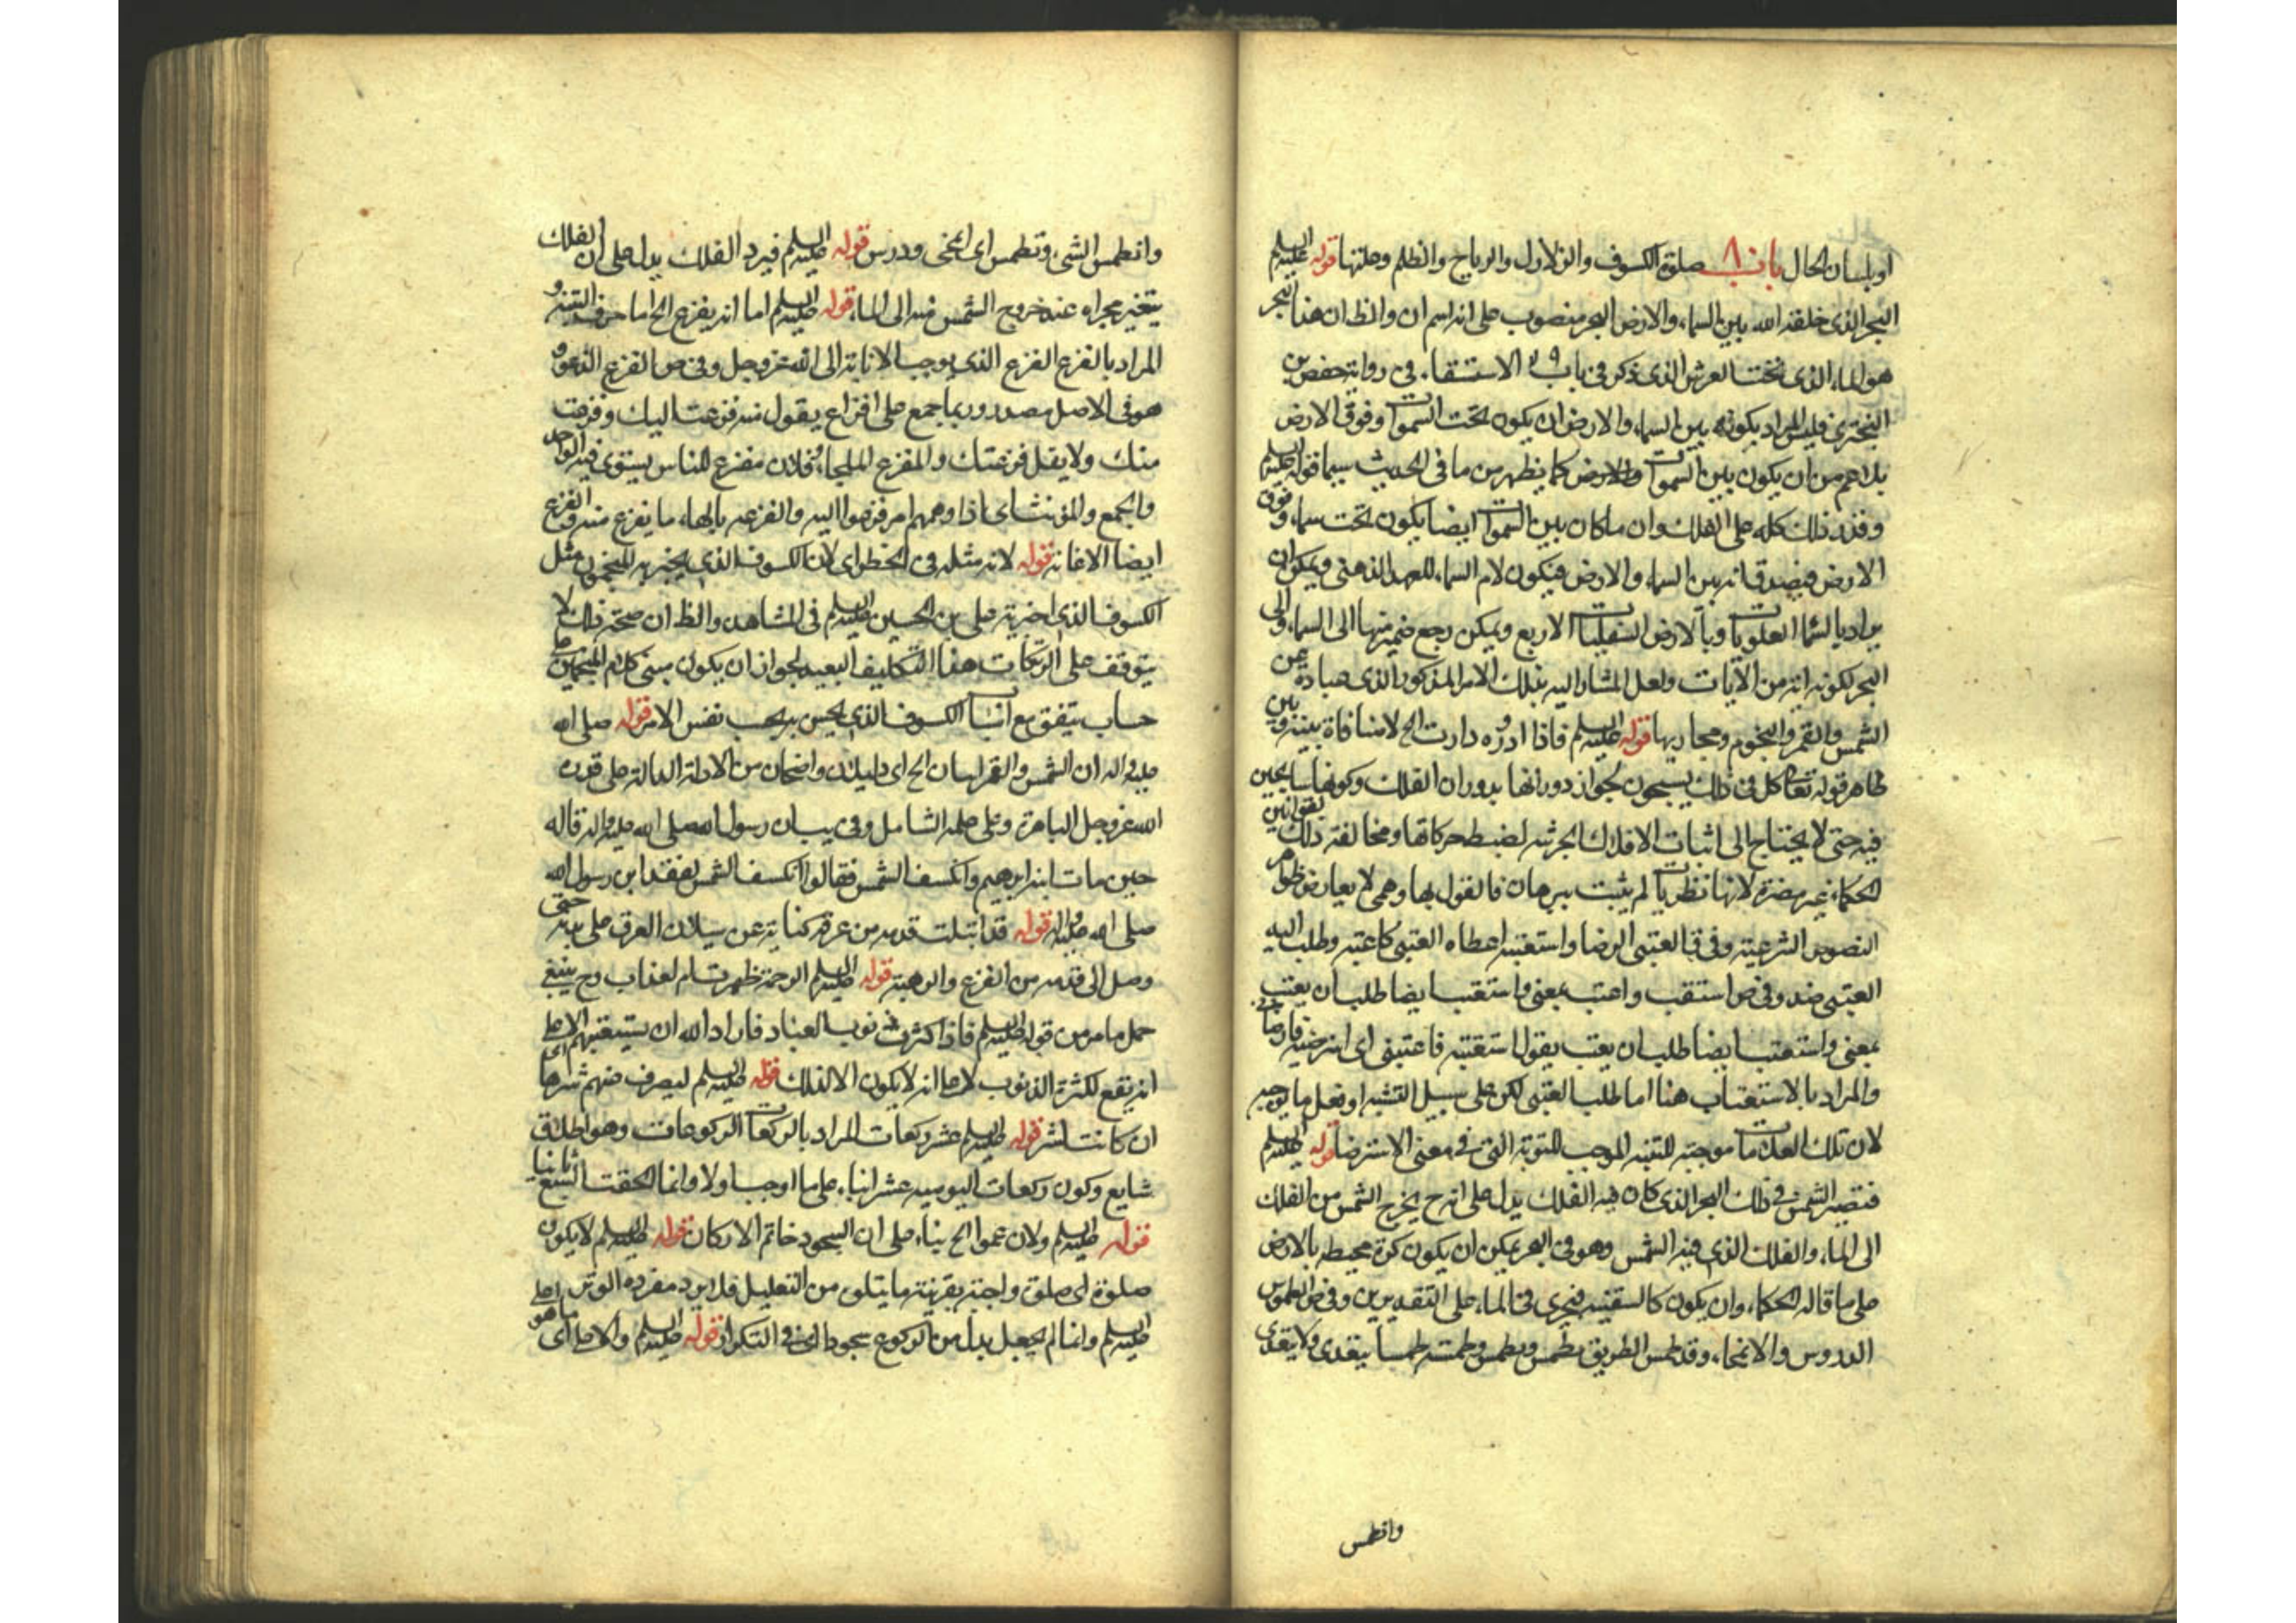 او بلسان الحال باب ٨١ صلوة الكسوف والزلازل والرياح والظلم وعلتها قوله عليه السلم
البحر الذى خلقه الله بين السماء والارض البحر منصوب على انه اسم ان والظ ان هذا البحر
هو الماء الذى تحت العرش الذى ذكر فى باب الاستسقاء فى رواية حفص بن
البخترى فليس المراد بكونه بين السماء والارض ان يكون تحت السموات وفوق الارض
بل اعم من ان يكون بين السموات والارض كما يظهر من ما فى الحديث سيما قوله عليه السلم
وقدر ذلك كله على الفلك وان ما كان بين السموات ايضا يكون تحت سماء وفوق
الارض فيصدق انه بين السماء والارض فيكون لام السماء للعهد الذهنى ويمكن ان
يراد بالسما العلويات وبالارض السفليات الاربع ويمكن رجع ضمير منها الى السماء والى
البحر لكونه انه من الآيات ولعل المشار اليه بتلك الامر المذكور الذى عبارة عن
الشمس والقمر والنجوم ومجاريها قوله عليه السلم فاذا اداروه دارت الخ لا منافاة بينه وبين
ظاهر قوله تعالى كل فى فلك يسبحون لجواز دورانها بدوران الفلك وكونها سابحين
فيه حتى لا يحتاج الى اثبات الافلاك الجزئية لضبط حركاتها ومخالفة ذلك لقوانين
الحكماء غير مضرة لانها نظريات لم يثبت ببرهان فالقول بها وهمى لا يعارض ظواهر
النصوص الشرعية وفى ق العتبى الرضا واستعتبه اعطاه العتبى كاعتبه وطلب اليه
العتبى ضد وفى ص استعتب واعتب بمعنى واستعتب ايضا طلب ان يعتب
بمعنى واستعتب ايضا طلب ان يعتب يقول استعتبته فاعتبنى اى استرضيته فارضانى
والمراد بالاستعتاب هنا اما طلب العتبى لكن على سبيل التشبيه او فعل ما يوجبه
لان تلك العلامات موجبة للتنبه الموجب للتوبة التى فى معنى الاسترضا قوله عليه السلم
فتصير الشمس فى ذلك البحر الذى كان فيه الفلك يدل على انه ح يخرج الشمس من الفلك
الى الماء والفلك الذى فيه الشمس وهو فى البحر يمكن ان يكون كرة محيطه بالارض
على ما قاله الحكماء وان يكون كالسفينة فيجرى فى الماء على التقديرين وفى ص الطموس
الدروس والانمحاء وقد طمس الطريق يطمس ويطمس وطمسته طمسا يتعدى ولا يتعدى
وانطمس
وانطمس الشىء وتطمس اى انمحى ودرس قوله عليه السلم فيرد الفلك يدل على ان الفلك
يتغير مجراه عند خروج الشمس منه الى الماء قوله عليه السلم اما انه يفزع الخ اما حرف التنبه و
المراد بالفزع الفزع الذى يوجب الانابة الى الله عز وجل وفى ص الفزع الذعر و
هو فى الاصل مصدر وربما جمع على افزاع يقول منه فزعت اليك وفزعت
منك ولا يقل فزعتك والمفزع الملجاء وفلان مفزع للناس يستوى فيه الواحد
والجمع والمؤنث اى اذا دهمهم امر فزعوا اليه والفزعه بالهاء ما يفزع منه والفزع
ايضا الاغاثه قوله لانه مثله فى الخطر اى لان الكسوف الذى يخبر به المنجمون مثل
الكسوف الذى اخبر به على بن الحسين عليه السلم فى المشاهد والظ ان صحة ذلك لا
يتوقف على ارتكاب هذا التكليف البعيد لجواز ان يكون مبنى كلام المنجمين على
حساب يتفق مع اسباب الكسوف الذى يحس به بحسب نفس الامر قوله صلى الله
عليه واله ان الشمس والقمر ايتان الخ اى دليلان واضحان من الادلة الدالة على قدرة
الله عز وجل الباهرة وعلى علمه الشامل وفى بيان رسول الله صلى الله عليه واله قاله
حين مات ابنه ابرهيم وانكسف الشمس فقالوا انكسف الشمس لفقد ابن رسول الله
صلى الله عليه واله قوله قد ابتلت قدمه من عرقه كناية عن سيلان العرق على بدنه حتى
وصل الى قدمه من الفزع والرهبة قوله عليه السلم الرحمة ظهرت ام لعذاب وح ينبغى
حمل ما مر من قوله عليه السلم فاذا كثرت ذنوب العباد فاراد الله ان يستعتبهم الا على
انه يقع لكثرة الذنوب لا على انه لا يكون الا لذلك قوله عليه السلم ليصرف عنهم شرها اى
ان كانت لشر قوله عليه السلم عشر ركعات المراد بالركعات الركوعات وهو اطلاق
شايع وكون ركعات اليوميه عشر بناء على ما اوجب اولا وانما الحقت السبع ثانيا
قوله عليه السلم ولان عموا الخ بناء على ان السجود خاتم الاركان قوله عليه السلم لا يكون
صلوة اى صلوة واجبة بقرينة ما يتلوه من التعليل فلا يرد مفرده الوتر
عليه السلم وانما لم يجعل بدل من الركوع سجودا اى فى التكرار قوله عليه السلم والا ما هو اى